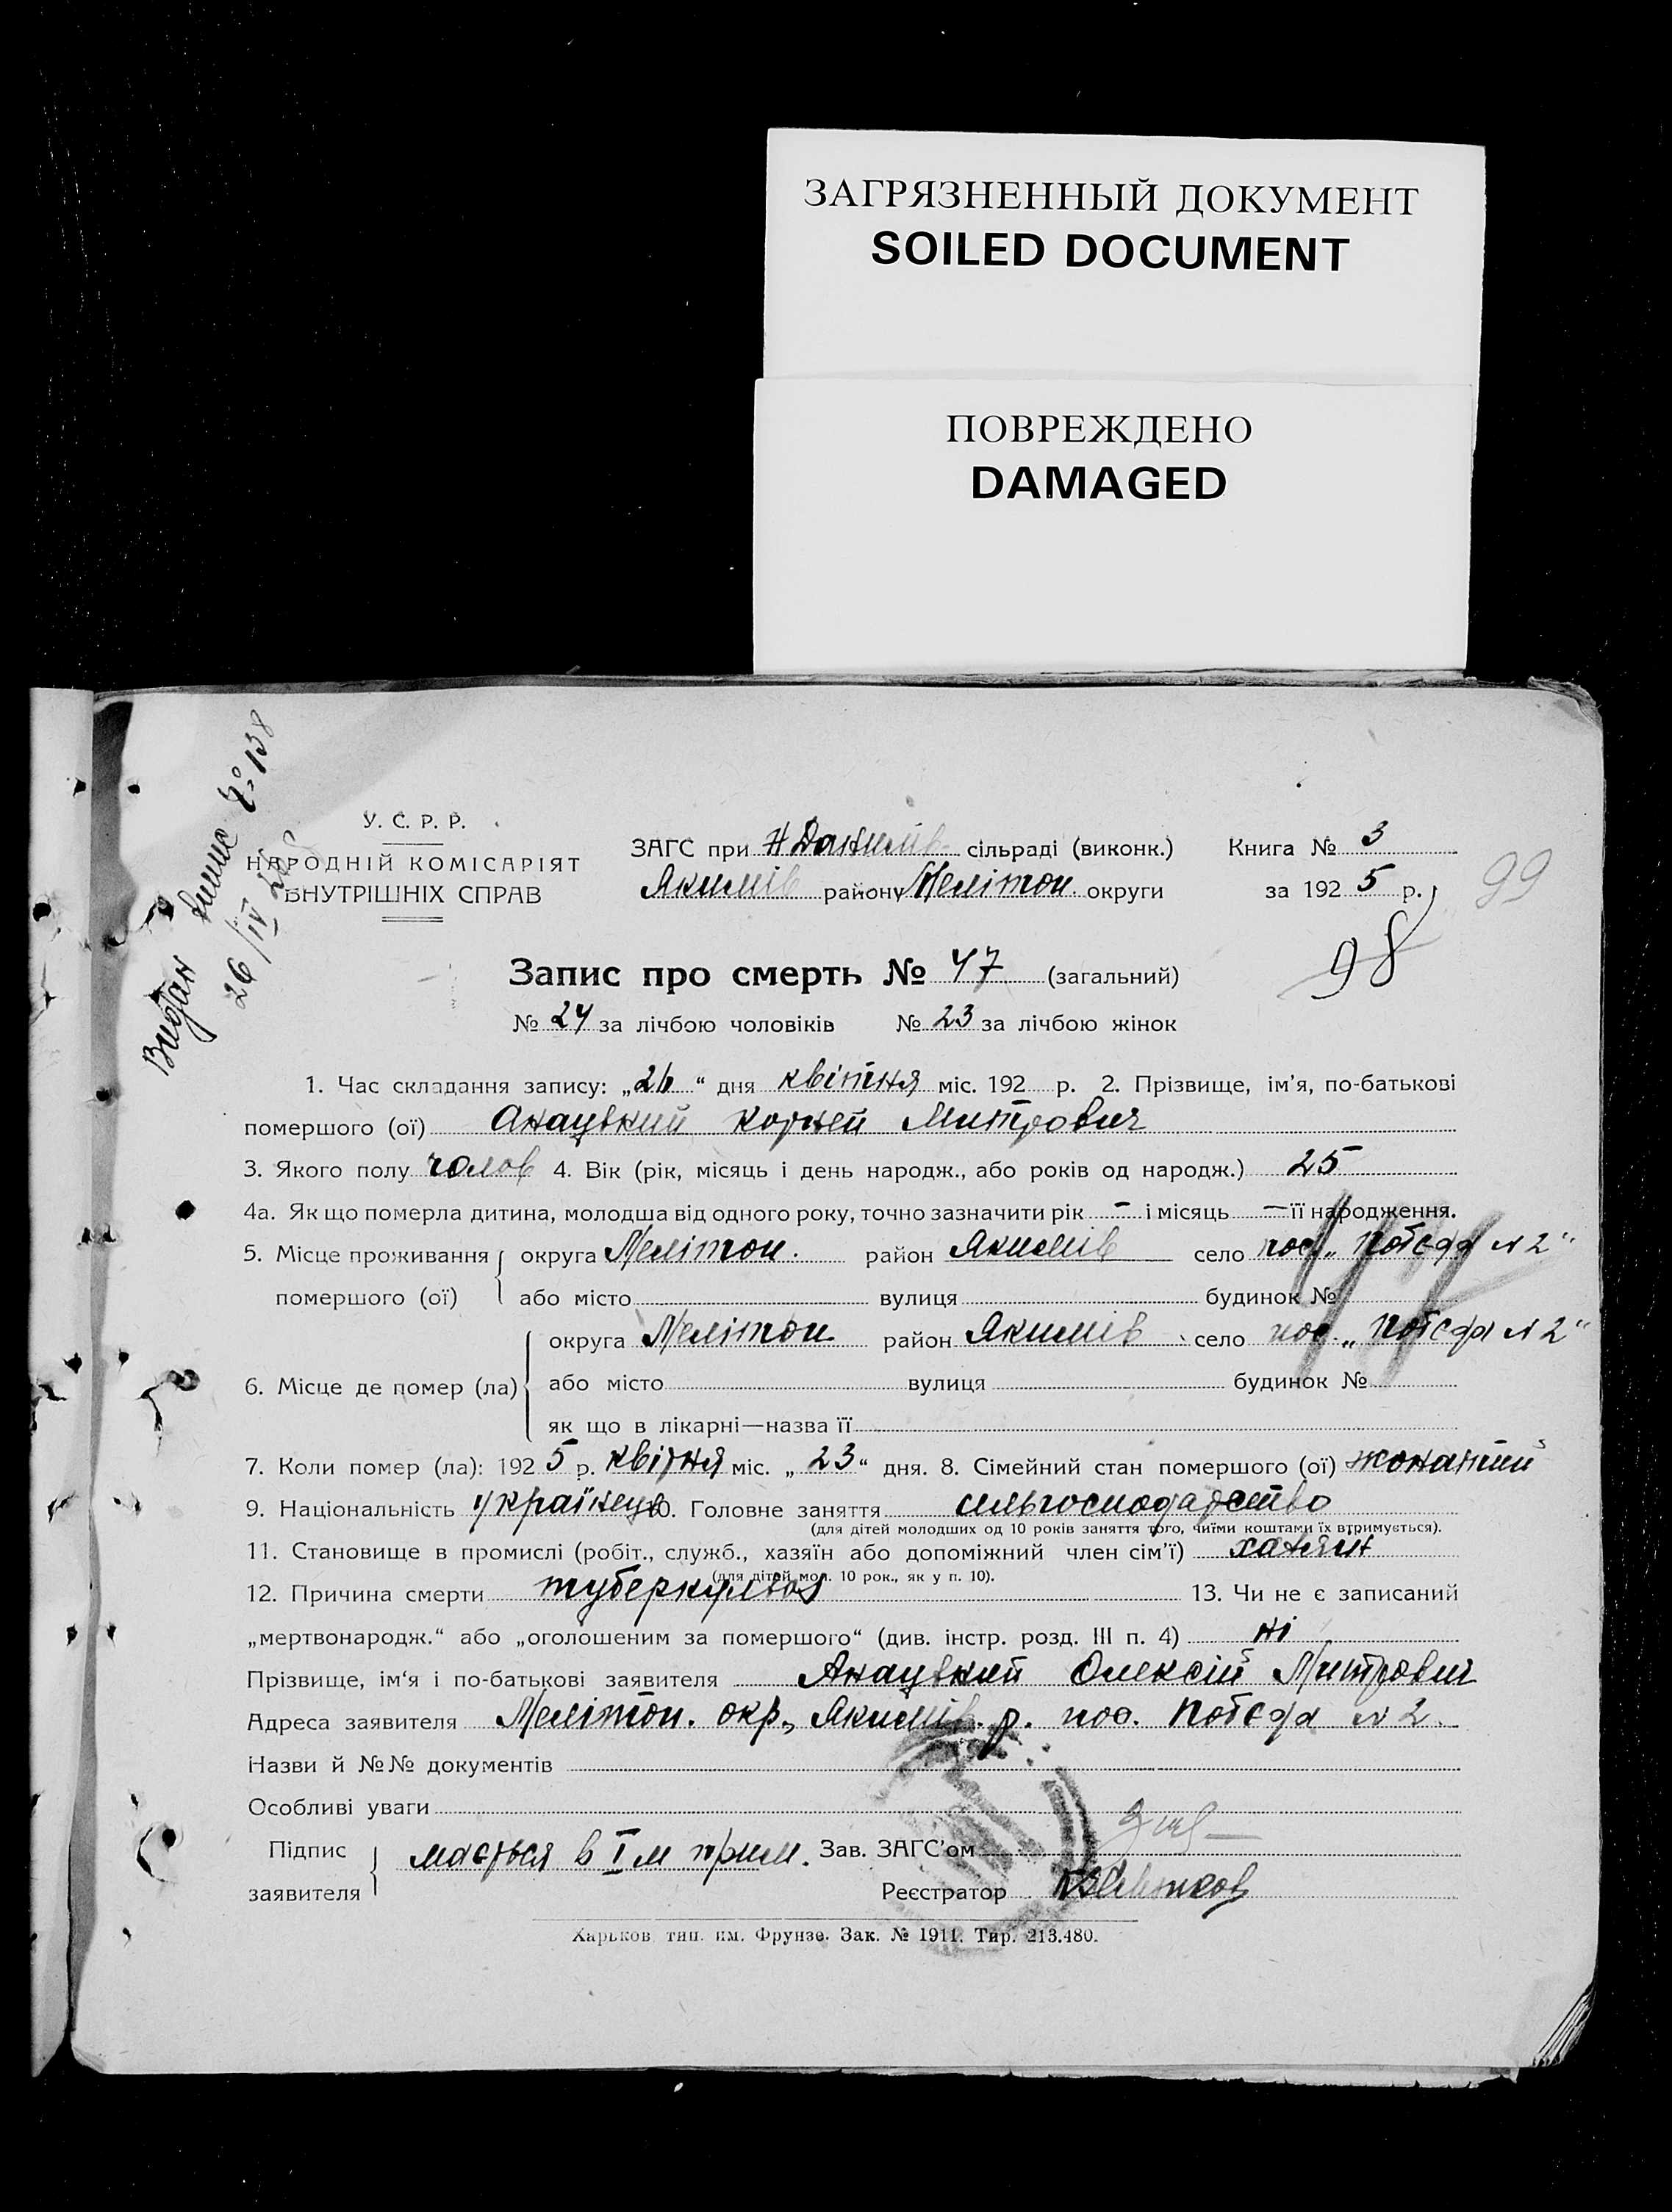 ЗАГРЯЗНЕННЫЙ ДОКУМЕНТ
SOILED DOCUMENT
ПОВРЕЖДЕНО
DAMAGED
Видан випис № 138
26/IV
У. С. Р. Р.
НАРОДНІЙ КОМІСАРІЯТ
ВНУТРІШНІХ СПРАВ
ЗАГС при Н Данилів сільраді (виконк.) Книга № 3
Якимів району Меліton. округи за 1925 р.
99
98
Запис про смерть № 47 (загальний)
№ 24 за лічбою чоловіків № 23 за лічбою жінок
1. Час складання запису: „26“ дня квітня міс. 192 р. 2. Прізвище, ім’я, по-батькові
помершого (ої) Анацький Корней Митрович
3. Якого полу чолов 4. Вік (рік, місяць і день народж., або років од народж.) 25
4а. Як що померла дитина, молодша від одного року, точно зазначити рік – і місяць — її народження.
5. Місце проживання округа Мелітоп. район Якимів село пос. „Победа № 2“
помершого (ої) або місто вулиця будинок №
округа Мелітоп район Якимів село пос. „Победа № 2“
6. Місце де помер (ла) або місто вулиця будинок №
як що в лікарні—назва її
7. Коли помер (ла): 1925 р. квітня міс. „23“ дня. 8. Сімейний стан помершого (ої) жонатий
9. Національність українець 10. Головне заняття сільгосподарство
(для дітей молодших од 10 років заняття того, чиїми коштами їх втримується).
11. Становище в промислі (робіт., служб., хазяїн або допоміжний член сім’ї) хазяїн
(для дітей мол. 10 рок., як у п. 10).
12. Причина смерти туберкульоз 13. Чи не є записаний
„мертвонародж.“ або „оголошеним за помершого“ (див. інстр. розд. III п. 4) ні
Прізвище, ім‘я і по-батькові заявителя Анацький Олексій Митрович
Адреса заявителя Мелітоп. окр., Якимів. р. пос. Победа № 2.
Назви й №№ документів
Особливі уваги
Підпис
заявителя мається в I м прим. Зав. ЗАГС’ом
Реєстратор
Харьков, тип. им. Фрунзе. Зак. № 1911. Тир. 213.480.